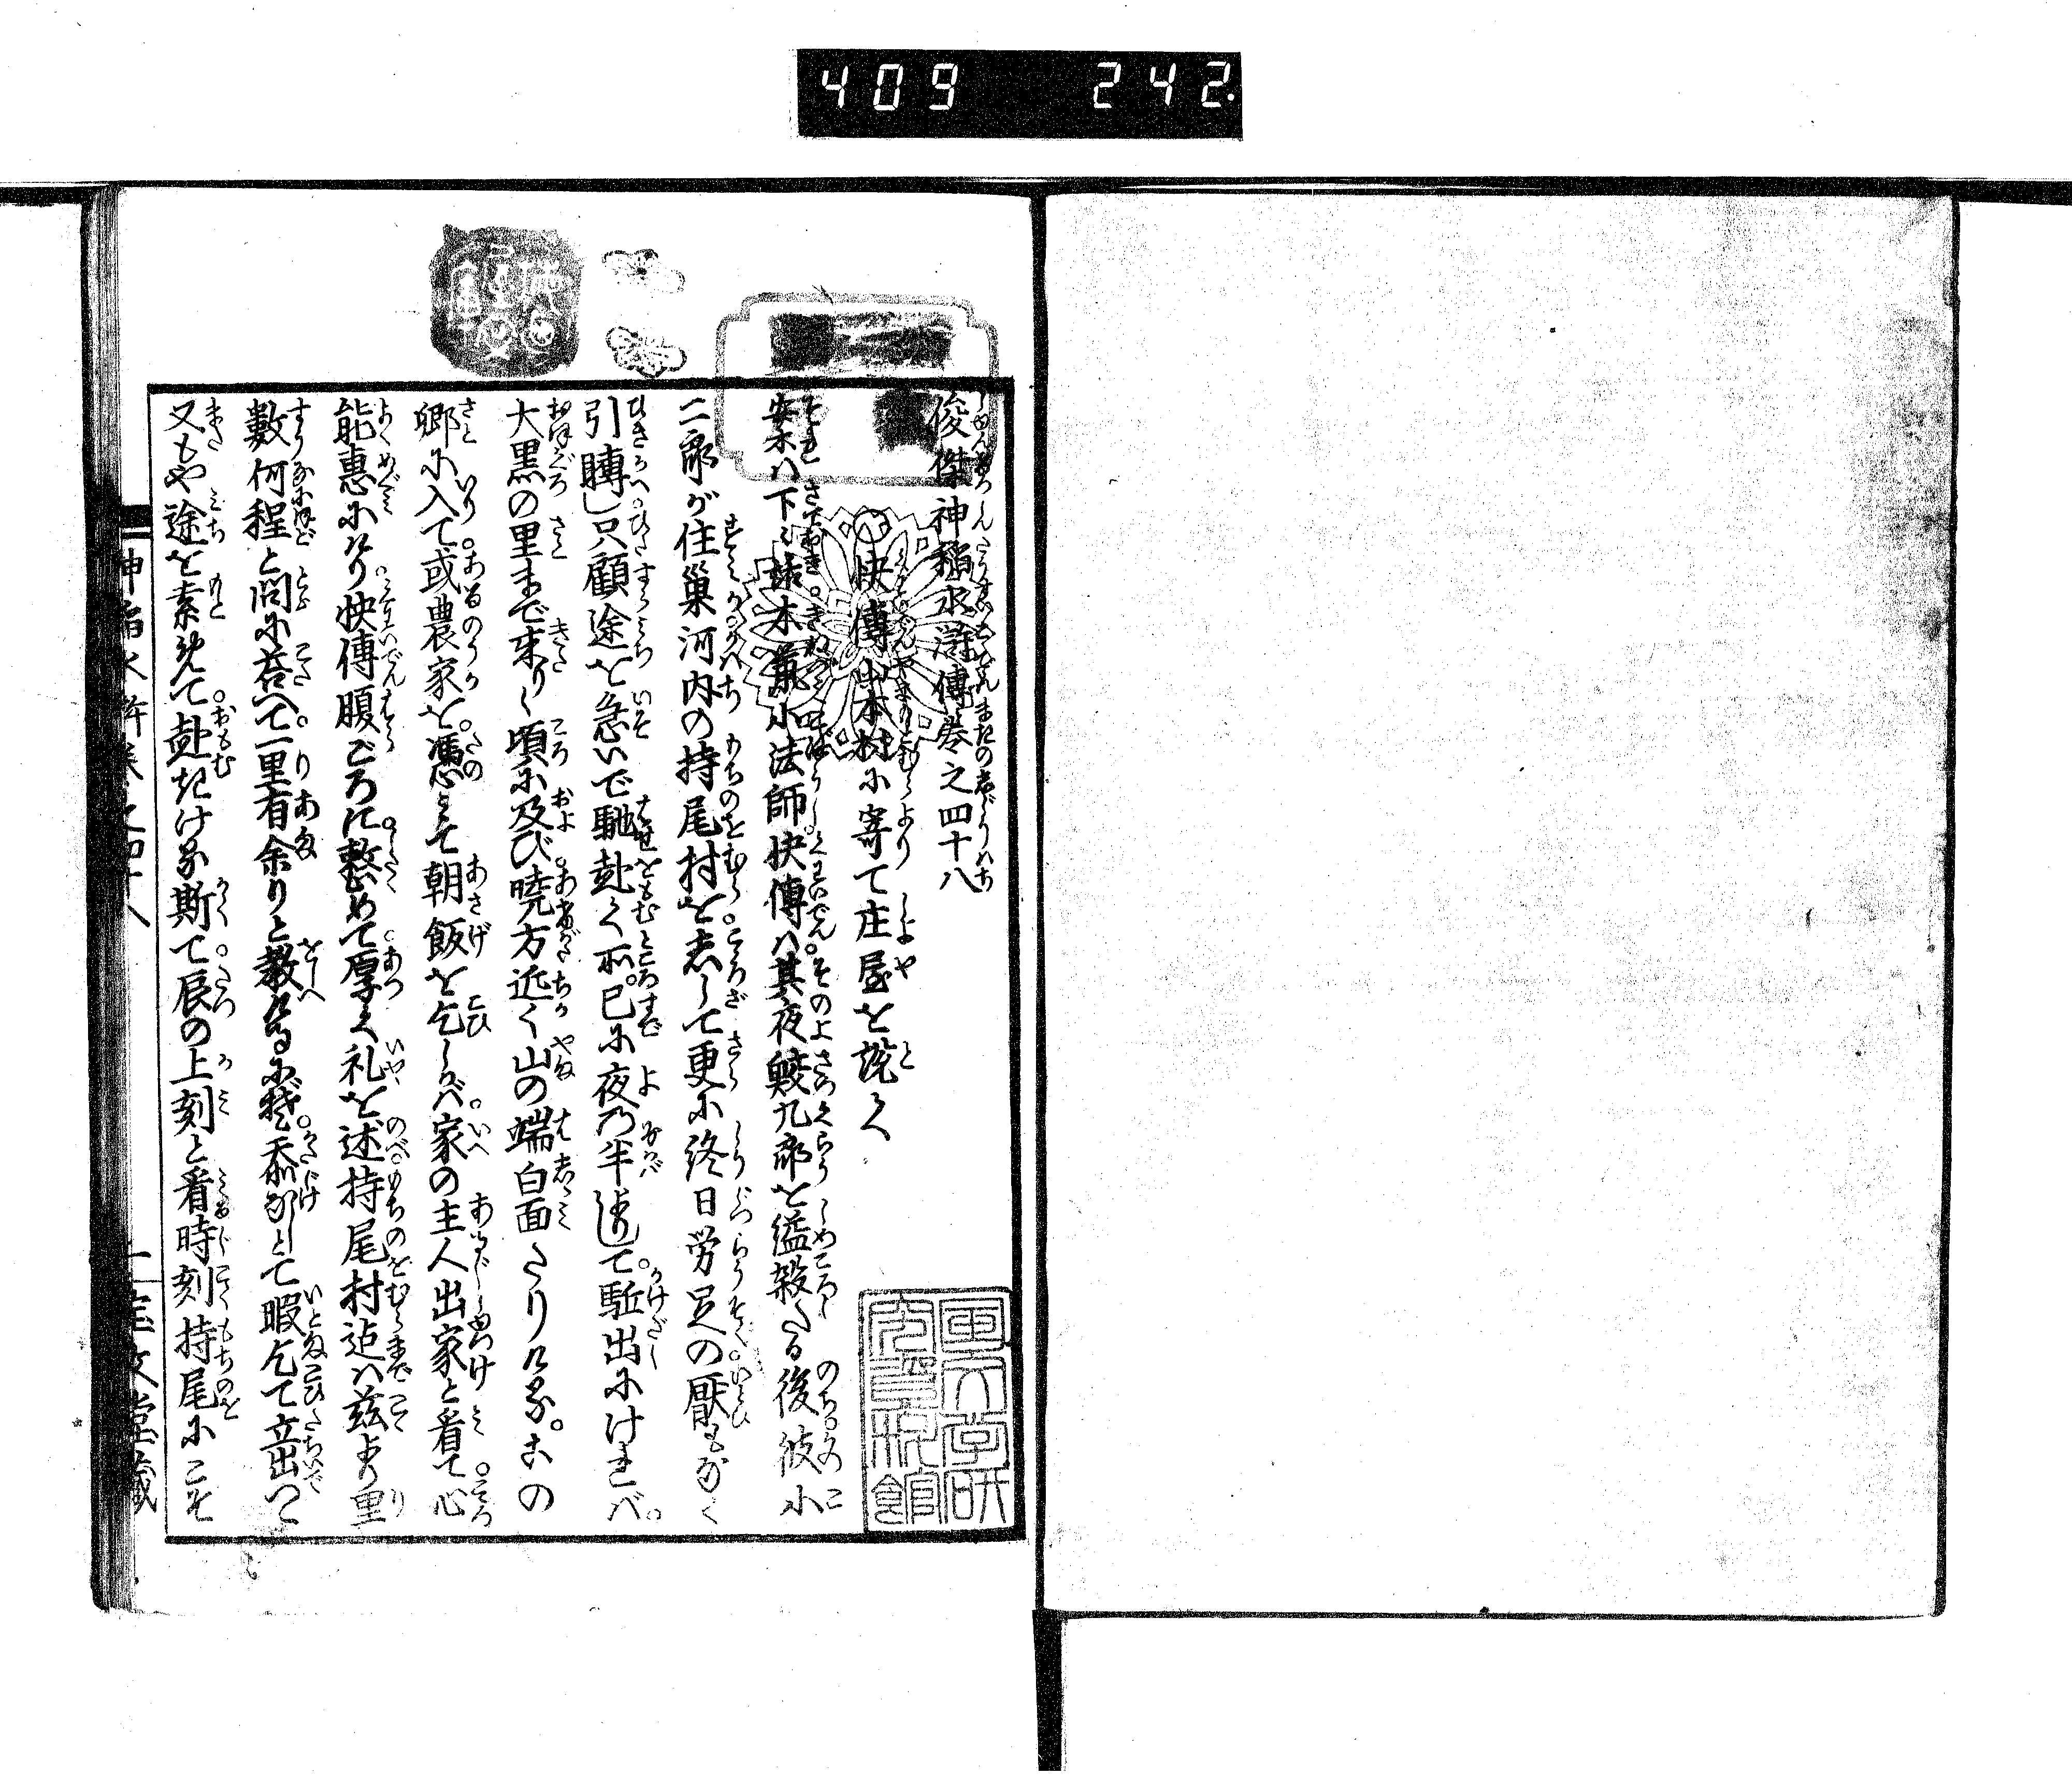 409 242.
俊傑神稲水滸傳巻之四十八
快傳山本村に寄て庄屋を説く
案下某木鼠小法師快傳ハ其夜鮫九郎を縊殺たる後彼小
二郎が住巣河内の持尾村を志して更に終日労足の厭もなく
引賻し只顧途を急いで馳赴く所已に夜乃半過して駈出にければ
大黒の里まで来りし頃に及び暁方近く山の端白面たりける。この
郷に入て或農家を憑みて朝飯を乞しかバ家の主人出家と看て心
能惠にけり快傳腹ごろに整めて厚く礼を述持尾村迠ハ茲より里
數何程と問に荅へて一里有余りと教るに忝なしとて暇乞て立出つゝ
又もや途を素めて赴きける斯て辰の上刻と看時刻持尾にこそ
神稲水滸傳巻之四十八
文堂藏